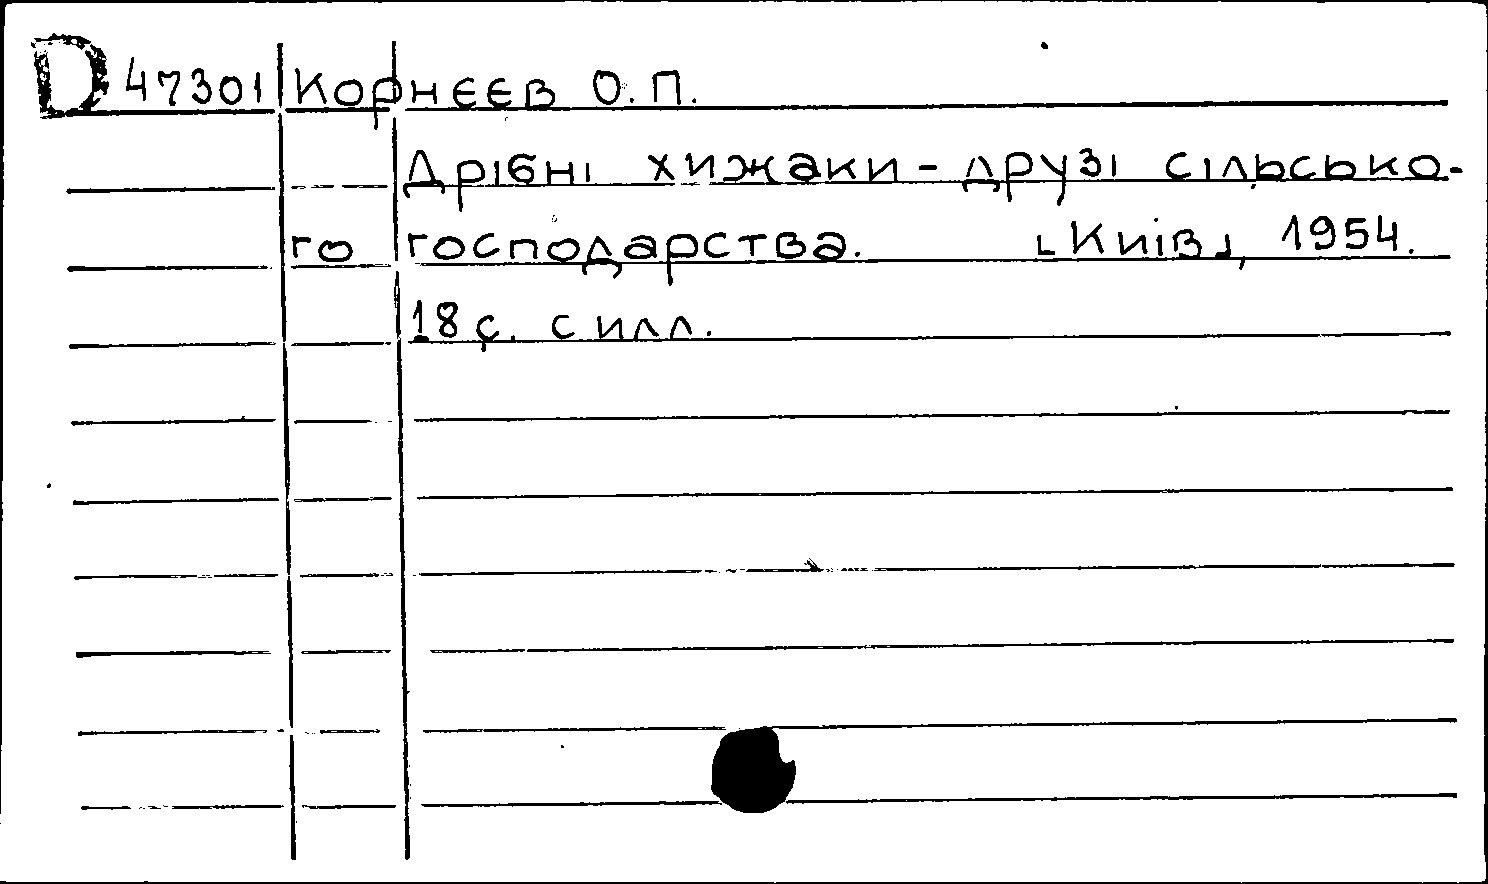 D 47301 Корнєєв О.П.
Дрібні хижаки - друзі сільсько-
го господарства. [Киів], 1954.
18 с. с илл.